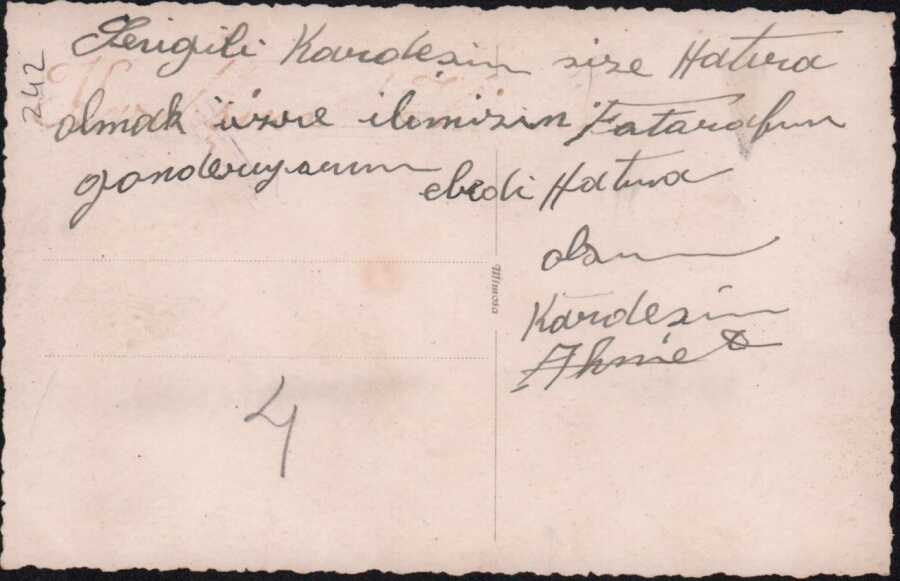 Sevgili Kardeşim size Hatıra
olmak üzre ilimizin Fatarafını
gonderiyorum ebedi Hatıra
olsun
Kardeşim
Ahmet
Mimosa
4
242